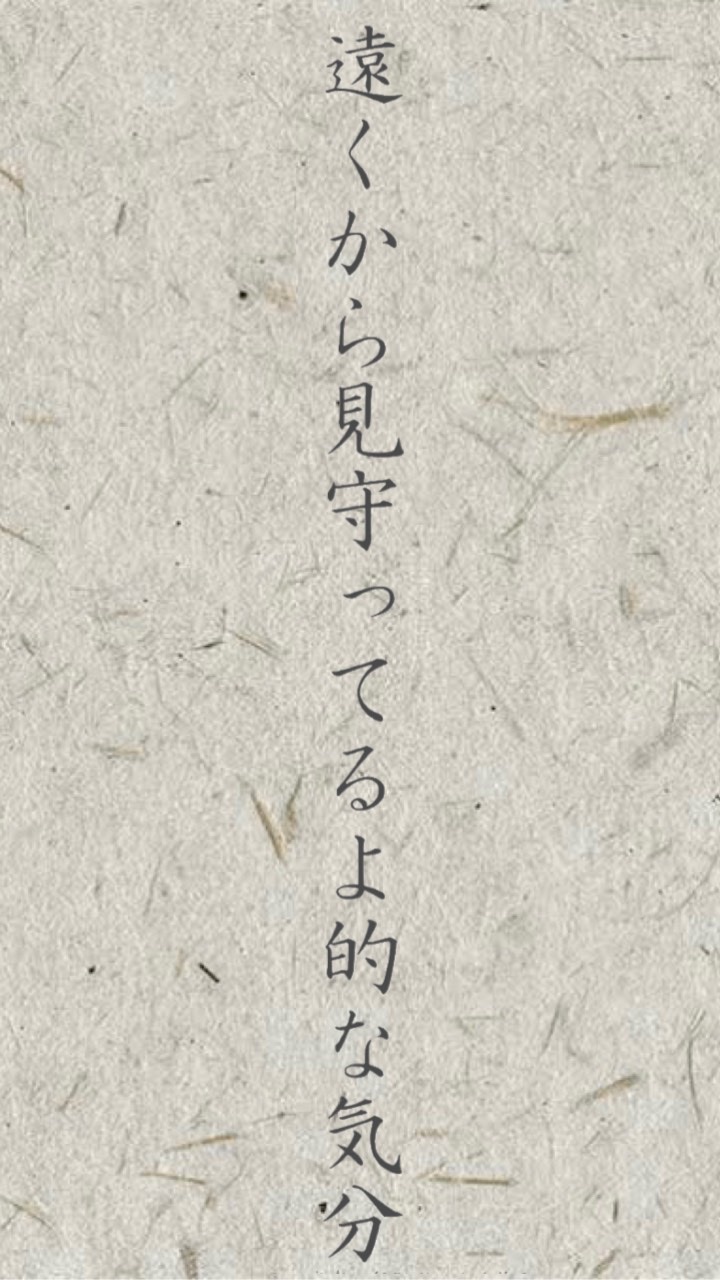 遠くから見守ってるよ的な気分